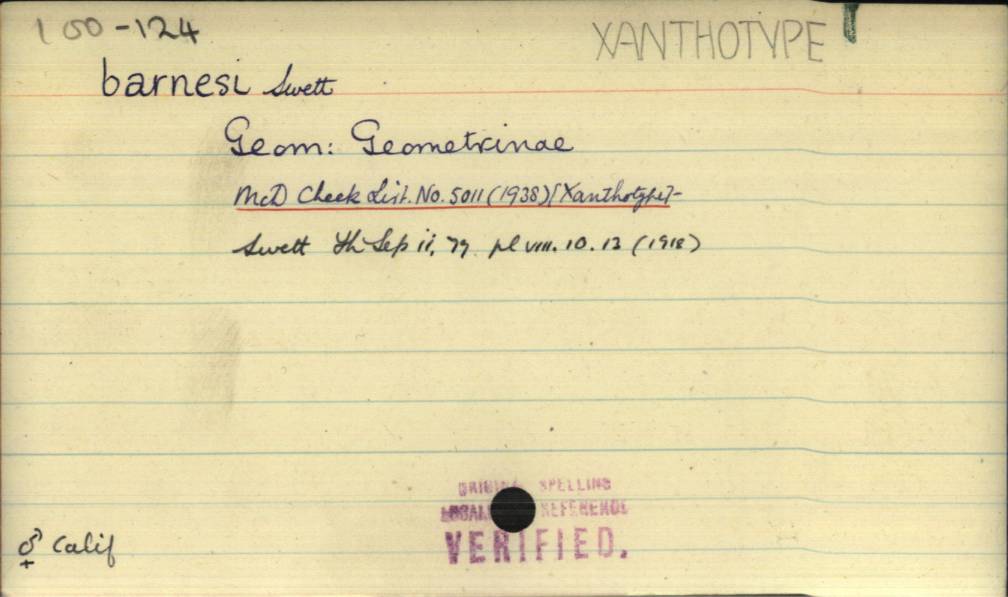 100-124
XANTHOTYPE
barnesi Swett
Geom: Geometrinae
McD Check List. No. 5011 (1938) [Xanthotype]-
Swett Th Lep ii, 79. pl viii. 10. 12 (1918)
SPELLING
REFERENCE
VERIFIED.
♂♀ Calif